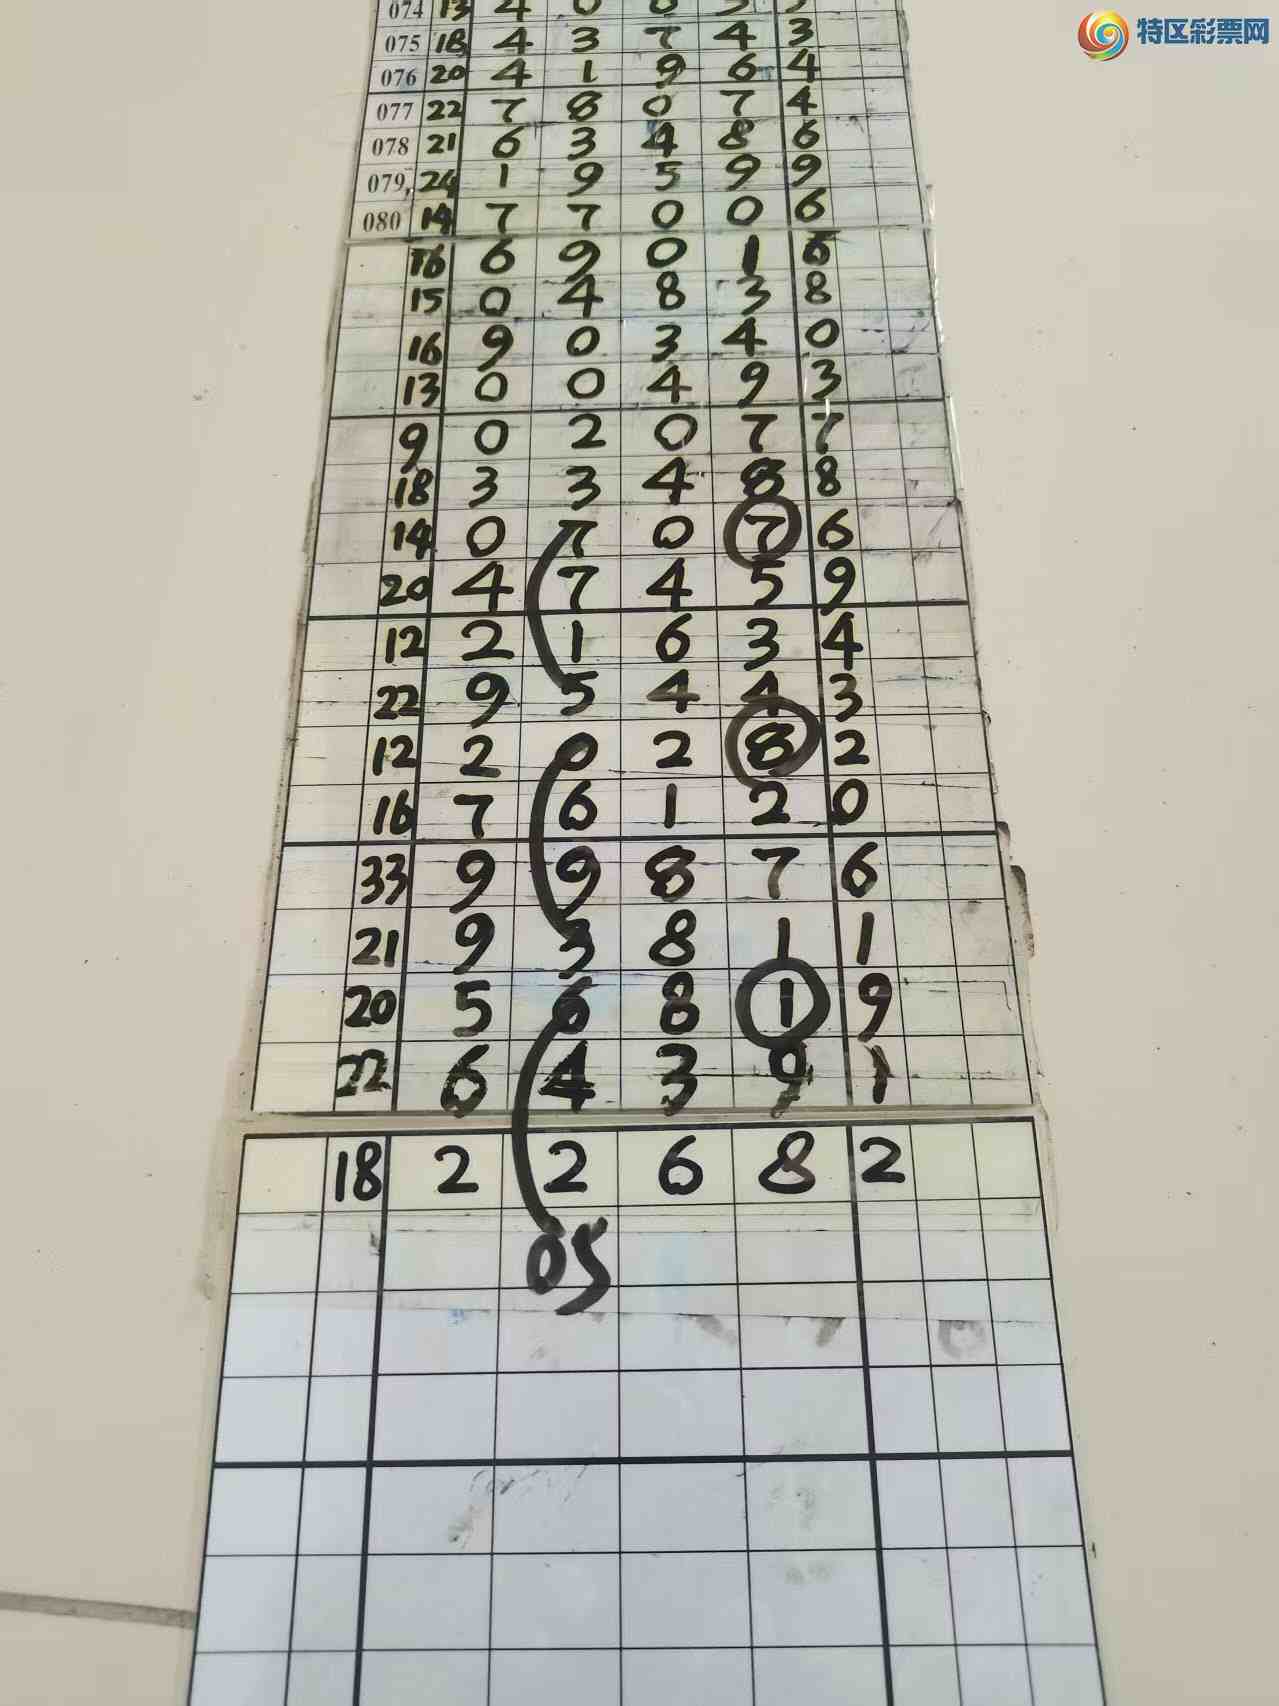 特区彩票网
074 13 4 0
075 18 4 3 7 4 3
076 20 4 1 9 6 4
077 22 7 8 0 7 4
078 21 6 3 4 8 6
079 24 1 9 5 9 9
080 14 7 7 0 0 6
16 6 9 0 1 6
15 0 4 8 3 8
16 9 0 3 4 0
13 0 0 4 9 3
9 0 2 0 7 7
18 3 3 4 8 8
14 0 7 0 7 6
20 4 7 4 5 9
12 2 1 6 3 4
22 9 5 4 4 3
12 2 0 2 8 2
16 7 6 1 2 0
33 9 9 8 7 6
21 9 3 8 1 1
20 5 6 8 1 9
22 6 4 3 9 1
18 2 2 6 8 2
05